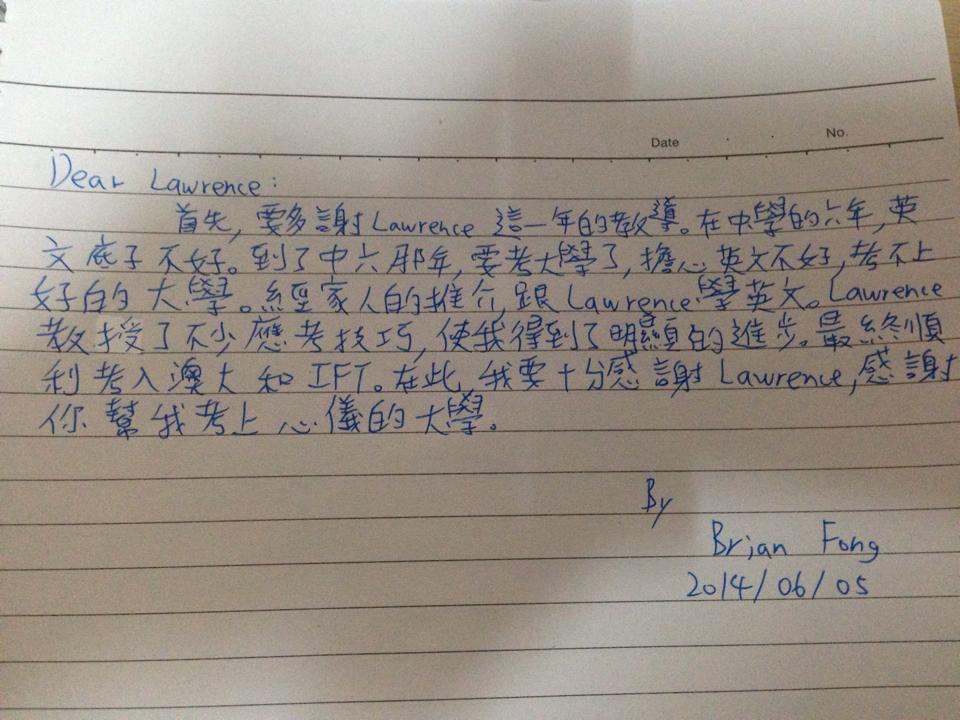 Date . . No.
Dear Lawrence:
首先,要多謝Lawrence 這一年的教導。在中學的六年,英
文底子不好。到了中六那年,要考大學了,擔心英文不好,考不上
好的大學。經家人的推介,跟Lawrence學英文。Lawrence
教授了不少應考技巧,使我得到了明顯的進步。最終順
利考入澳大和IFT。在此,我要十分感謝Lawrence,感謝
你幫我考上心儀的大學。
By
Brian Fong
2014/06/05